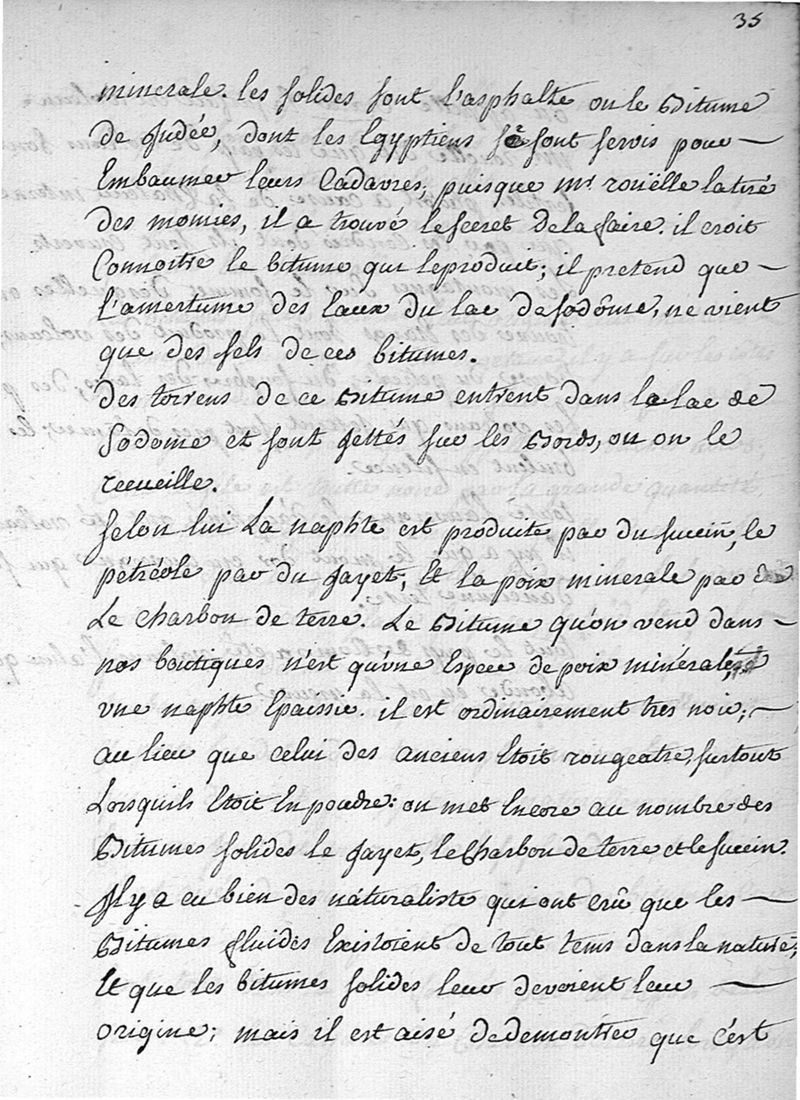 35
minerale. les solides sont l'asphalte ou le Bitume
de Judée, dont les Egyptiens se sont servis pour —
Embaumer leurs Cadavres, puisque mr. roüelle la tiré
des momies, il a trouvé le secret de la faire. il croit
Connoitre le bitume qui le produit; il pretend que —
l'amertume des Eaux du lac de Sodôme, ne vient
que des sels de ces bitumes.
Des torrens de ce Bitume entrent dans le lac de
Sodome et sont jettés sur les Bords, ou on le
recueille.
Selon lui La naphte est produite par du succin, le
pétréole par du Jayet, Et la poix minerale par
Le charbon de terre. Le Bitume qu'on vend dans —
nos boutiques n'est qu'vne Espece de poix minérale,
vne naphte Epaissie. il est ordinairement tres noir, —
au lieu que celui des anciens Etoit rougeatre, surtout
Lorsquils Etoit En poudre: on met Encore au nombre des
Bitumes solides le Jayet, le Charbon de terre et le succin.
Il y a eu bien des naturaliste qui ont crû que les —
Bitumes fluides Existoient de tout tems dans la nature,
Et que les bitumes solides leur devoient leur —
origine; mais il est aisé de demontrer que c'est